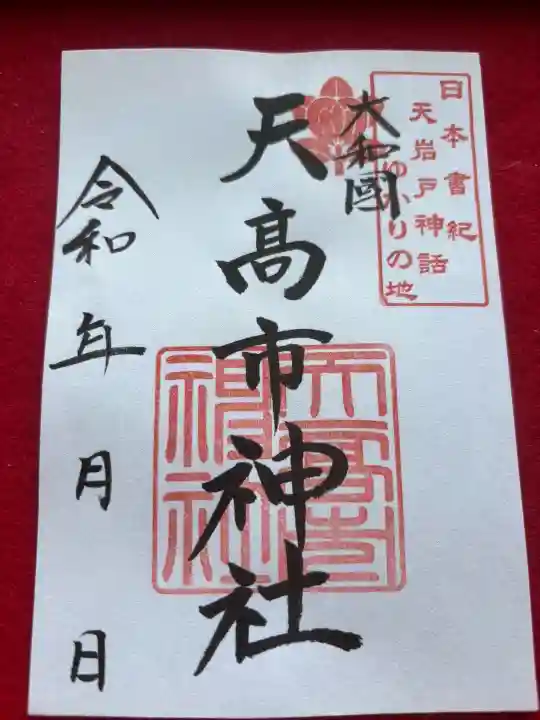 日本書紀
天岩戸神話
ゆかりの地
大和國
天高市神社
天高市
神社
令和 年 月 日